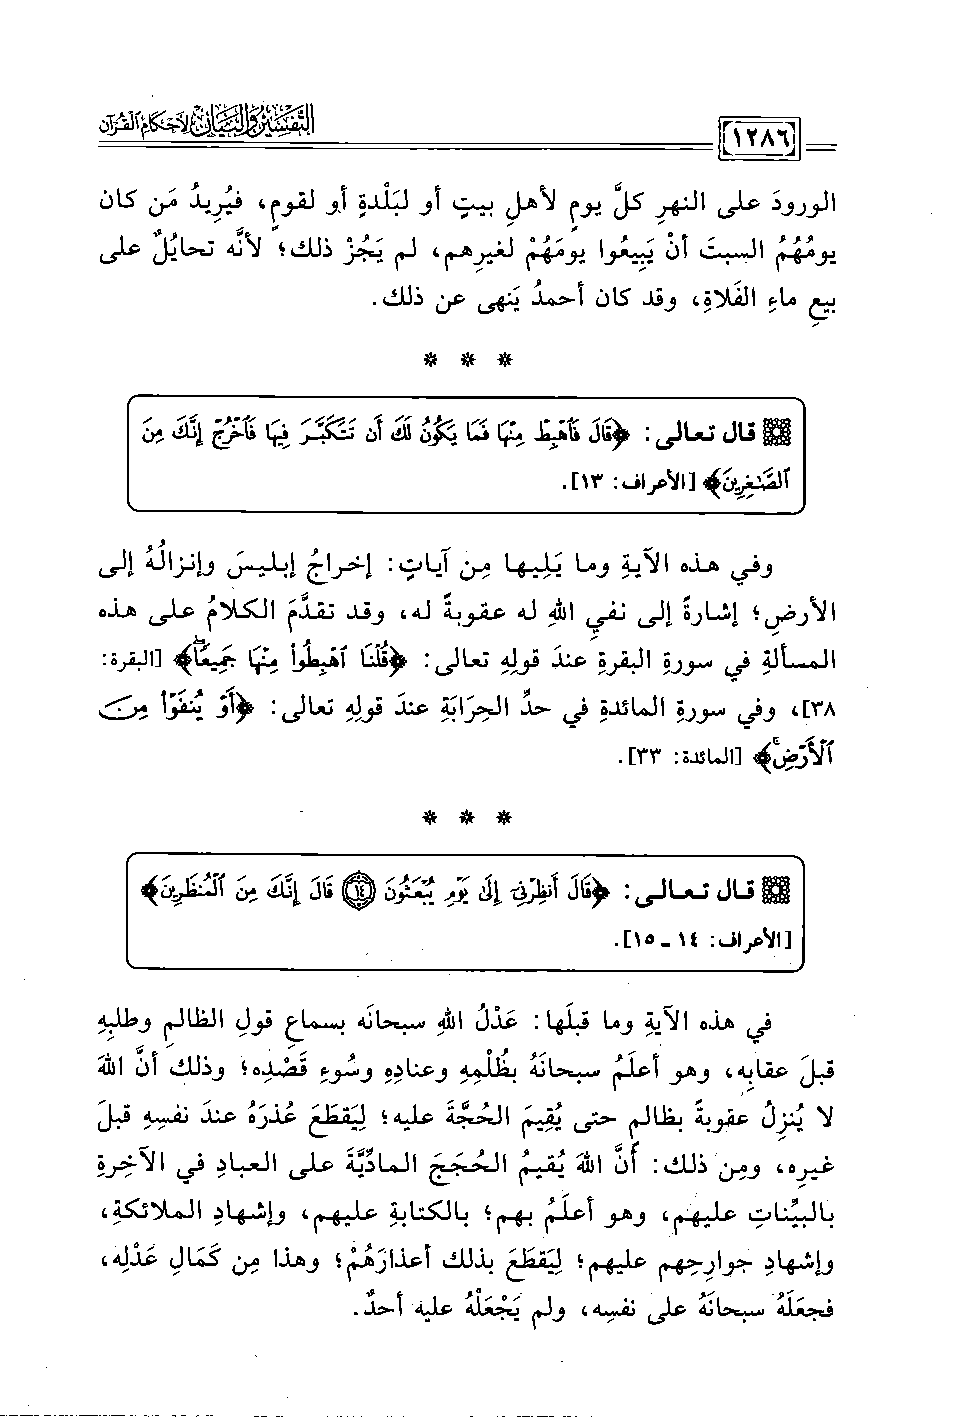 التفسير والبيان لأحكام القرآن
١٢٨٦
الورودَ على النهرِ كلَّ يومٍ لأهلِ بيتٍ أو لبَلْدةٍ أو لقومٍ، فيُرِيدُ مَن كان
يومُهُمُ السبتَ أنْ يَبِيعُوا يومَهُمْ لغيرِهم، لم يَجُزْ ذلك؛ لأنَّه تحايُلٌ على
بيعِ ماءِ الفَلَاةِ، وقد كان أحمدُ يَنهى عن ذلك.
* * *
قال تعالى: ﴿قَالَ فَٱهْبِطْ مِنْهَا فَمَا يَكُونُ لَكَ أَن تَتَكَبَّرَ فِيهَا فَٱخْرُجْ إِنَّكَ مِنَ
ٱلصَّٰغِرِينَ﴾ [الأعراف: ١٣].
وفي هذه الآيةِ وما يَلِيها مِن آياتٍ: إخراجُ إبليسَ وإنزالُهُ إلى
الأرضِ؛ إشارةً إلى نفيِ اللهِ له عقوبةً له، وقد تقدَّمَ الكلامُ على هذه
المسألةِ في سورةِ البقرةِ عندَ قولِهِ تعالى: ﴿قُلْنَا ٱهْبِطُوا۟ مِنْهَا جَمِيعًاۖ﴾ [البقرة:
٣٨]، وفي سورةِ المائدةِ في حدِّ الحِرَابَةِ عندَ قولِهِ تعالى: ﴿أَوْ يُنفَوْا۟ مِنَ
ٱلْأَرْضِۚ﴾ [المائدة: ٣٣].
* * *
قال تعالى: ﴿قَالَ أَنظِرْنِىٓ إِلَىٰ يَوْمِ يُبْعَثُونَ ١٤ قَالَ إِنَّكَ مِنَ ٱلْمُنظَرِينَ﴾
[الأعراف: ١٤ ـ ١٥].
في هذه الآيةِ وما قبلَها: عَدْلُ اللهِ سبحانَه بسماعِ قولِ الظالمِ وطلبِهِ
قبلَ عقابِه، وهو أعلَمُ سبحانَهُ بظُلْمِهِ وعنادِهِ وسُوءِ قَصْدِه؛ وذلك أنَّ اللهَ
لا يُنزِلُ عقوبةً بظالمٍ حتى يُقِيمَ الحُجَّةَ عليه؛ لِيَقطَعَ عُذرَهُ عندَ نفسِهِ قبلَ
غيرِه، ومِن ذلك: أنَّ اللهَ يُقيمُ الحُجَجَ المادِّيَّةَ على العبادِ في الآخِرةِ
بالبيِّناتِ عليهم، وهو أعلَمُ بهم؛ بالكتابةِ عليهم، وإشهادِ الملائكةِ،
وإشهادِ جوارِحِهم عليهم؛ لِيَقطَعَ بذلك أعذارَهُمْ؛ وهذا مِن كَمَالِ عَدْلِه،
فجعَلَهُ سبحانَهُ على نفسِه، ولم يَجْعَلْهُ عليه أحدٌ.